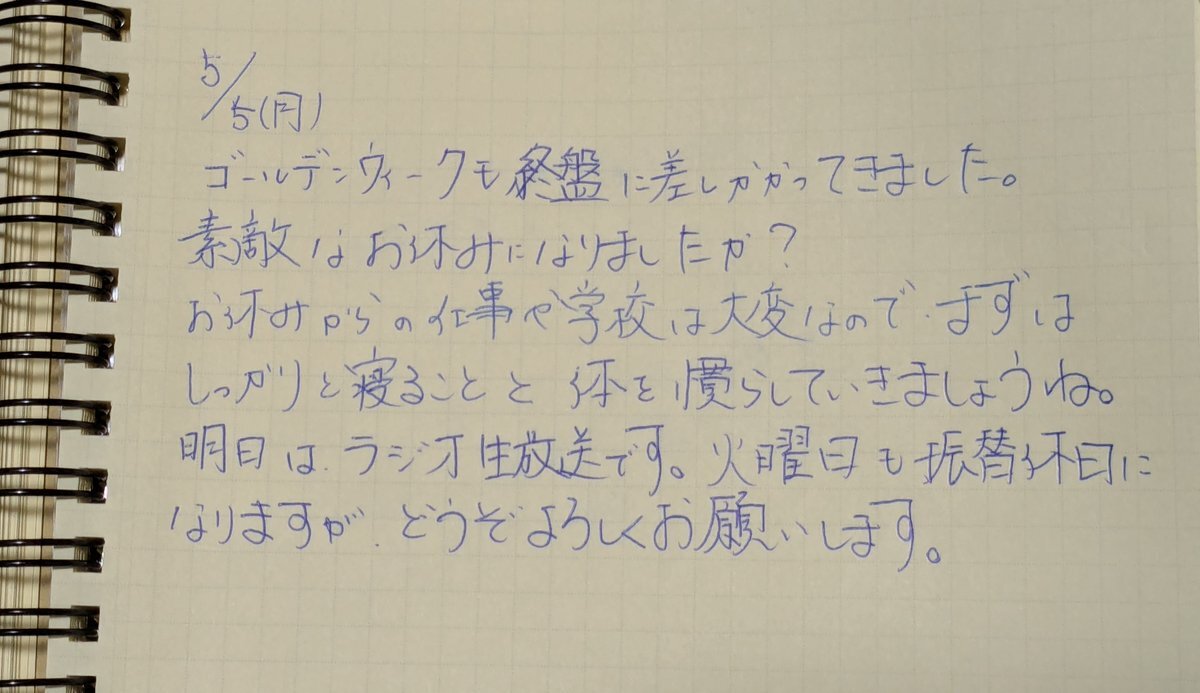 5/5(月)
ゴールデンウィークも終盤に差しかかってきました。
素敵なお休みになりましたか？
お休みからの仕事や学校は大変なので、まずは
しっかりと寝ることと体を慣らしていきましょうね。
明日は、ラジオ生放送です。火曜日も振替休日に
なりますが、どうぞよろしくお願いします。